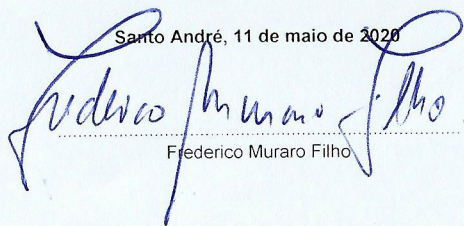 Santo André, 11 de maio de 2020
Frederico Muraro Filho
Frederico Muraro Filho